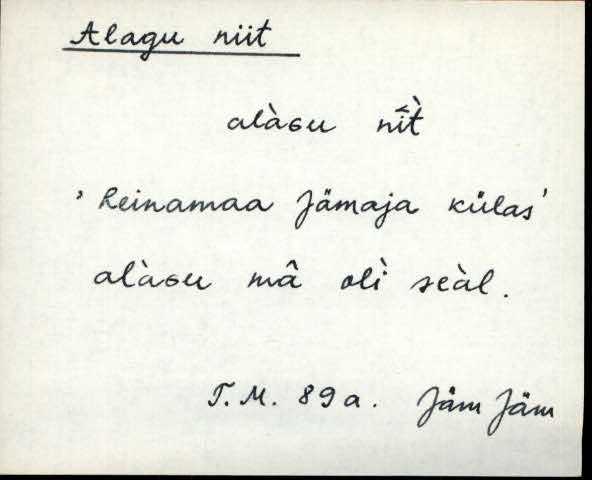 Alagu niit
alàɢu nî̀t
'heinamaa Jämaja külas'
alàɢu mâ olì seàl.
T.M. 89a. Jäm Jäm